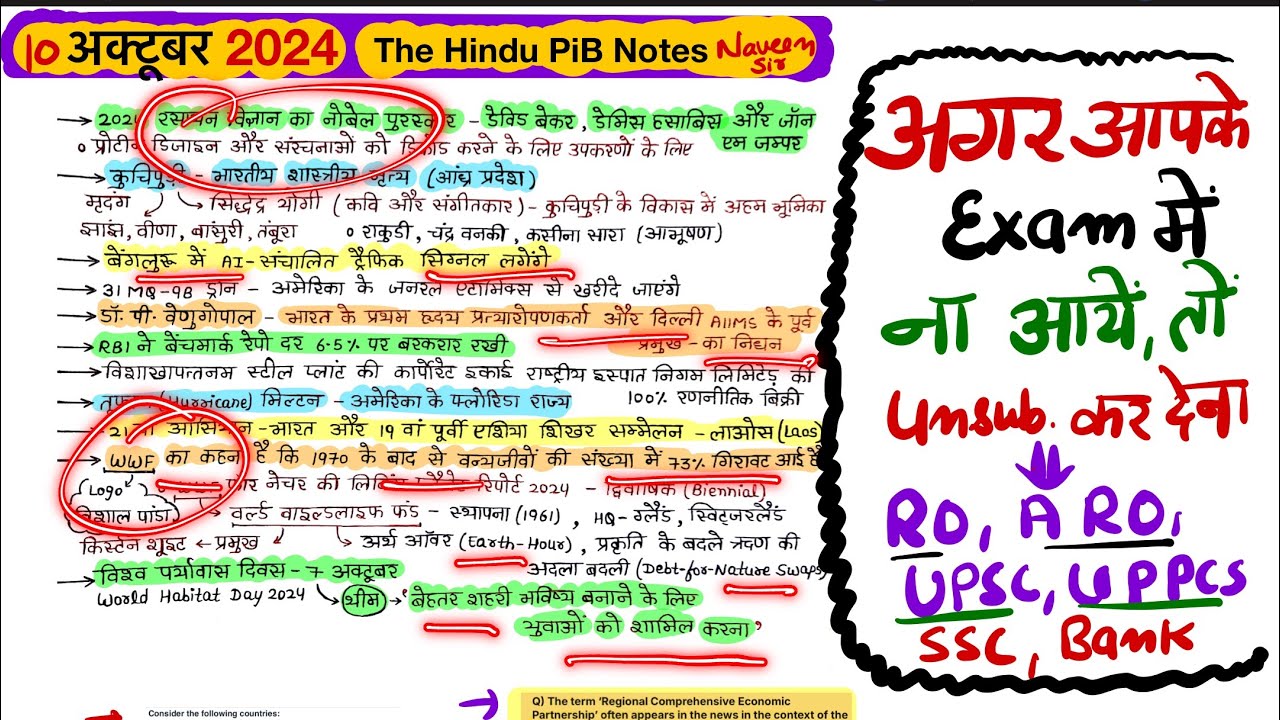 10 अक्टूबर 2024 The Hindu PiB Notes Naveen Sir
→ 2024 रसायन विज्ञान का नोबेल पुरस्कार - डेविड बेकर, डेमिस हसाबिस और जॉन एम जम्पर
० प्रोटीन डिजाइन और संरचनाओं को डिकोड करने के लिए उपकरणों के लिए
→ कुचिपुड़ी - भारतीय शास्त्रीय नृत्य (आंध्र प्रदेश)
मृदंग → सिद्धेंद्र योगी (कवि और संगीतकार) - कुचिपुड़ी के विकास में अहम भूमिका
झांझ, वीणा, बांसुरी, तंबूरा ० राकुडी, चंद्र वनकी, कसीना सारा (आभूषण)
→ बेंगलुरू में AI-संचालित ट्रैफिक सिग्नल लगेंगे
→ 31 MQ-9B ड्रोन - अमेरिका के जनरल एटॉमिक्स से खरीदे जाएंगे
→ डॉ. पी. वेणुगोपाल - भारत के प्रथम हृदय प्रत्यारोपणकर्ता और दिल्ली AIIMS के पूर्व प्रमुख - का निधन
→ RBI ने बेंचमार्क रेपो दर 6.5% पर बरकरार रखी
→ विशाखापत्तनम स्टील प्लांट की कार्पोरेट इकाई राष्ट्रीय इस्पात निगम लिमिटेड की 100% रणनीतिक बिक्री
→ (Hurricane) मिल्टन - अमेरिका के फ्लोरिडा राज्य
→ 21 वां आसियान-भारत और 19 वां पूर्वी एशिया शिखर सम्मेलन - लाओस (Laos)
→ WWF का कहना है कि 1970 के बाद से वन्यजीवों की संख्या में 73% गिरावट आई है
Logo फॉर नेचर की लिविंग प्लैनेट रिपोर्ट 2024 - द्विवार्षिक (Biennial)
विशाल पांडा → वर्ल्ड वाइल्डलाइफ फंड - स्थापना (1961), HQ- ग्लैंड, स्विट्जरलैंड
किर्स्टन शूइट ← प्रमुख → अर्थ ऑवर (Earth-Hour), प्रकृति के बदले ऋण की अदला बदली (Debt-for-Nature Swaps)
→ विश्व पर्यावास दिवस - 7 अक्टूबर
World Habitat Day 2024 → थीम → 'बेहतर शहरी भविष्य बनाने के लिए
युवाओं को शामिल करना'
Consider the following countries:
Q) The term 'Regional Comprehensive Economic
Partnership' often appears in the news in the context of the
अगर आपके
Exam में
ना आयें, तो
Unsub. कर देना
RO, A RO,
UPSC, UPPCS
SSC, Bank